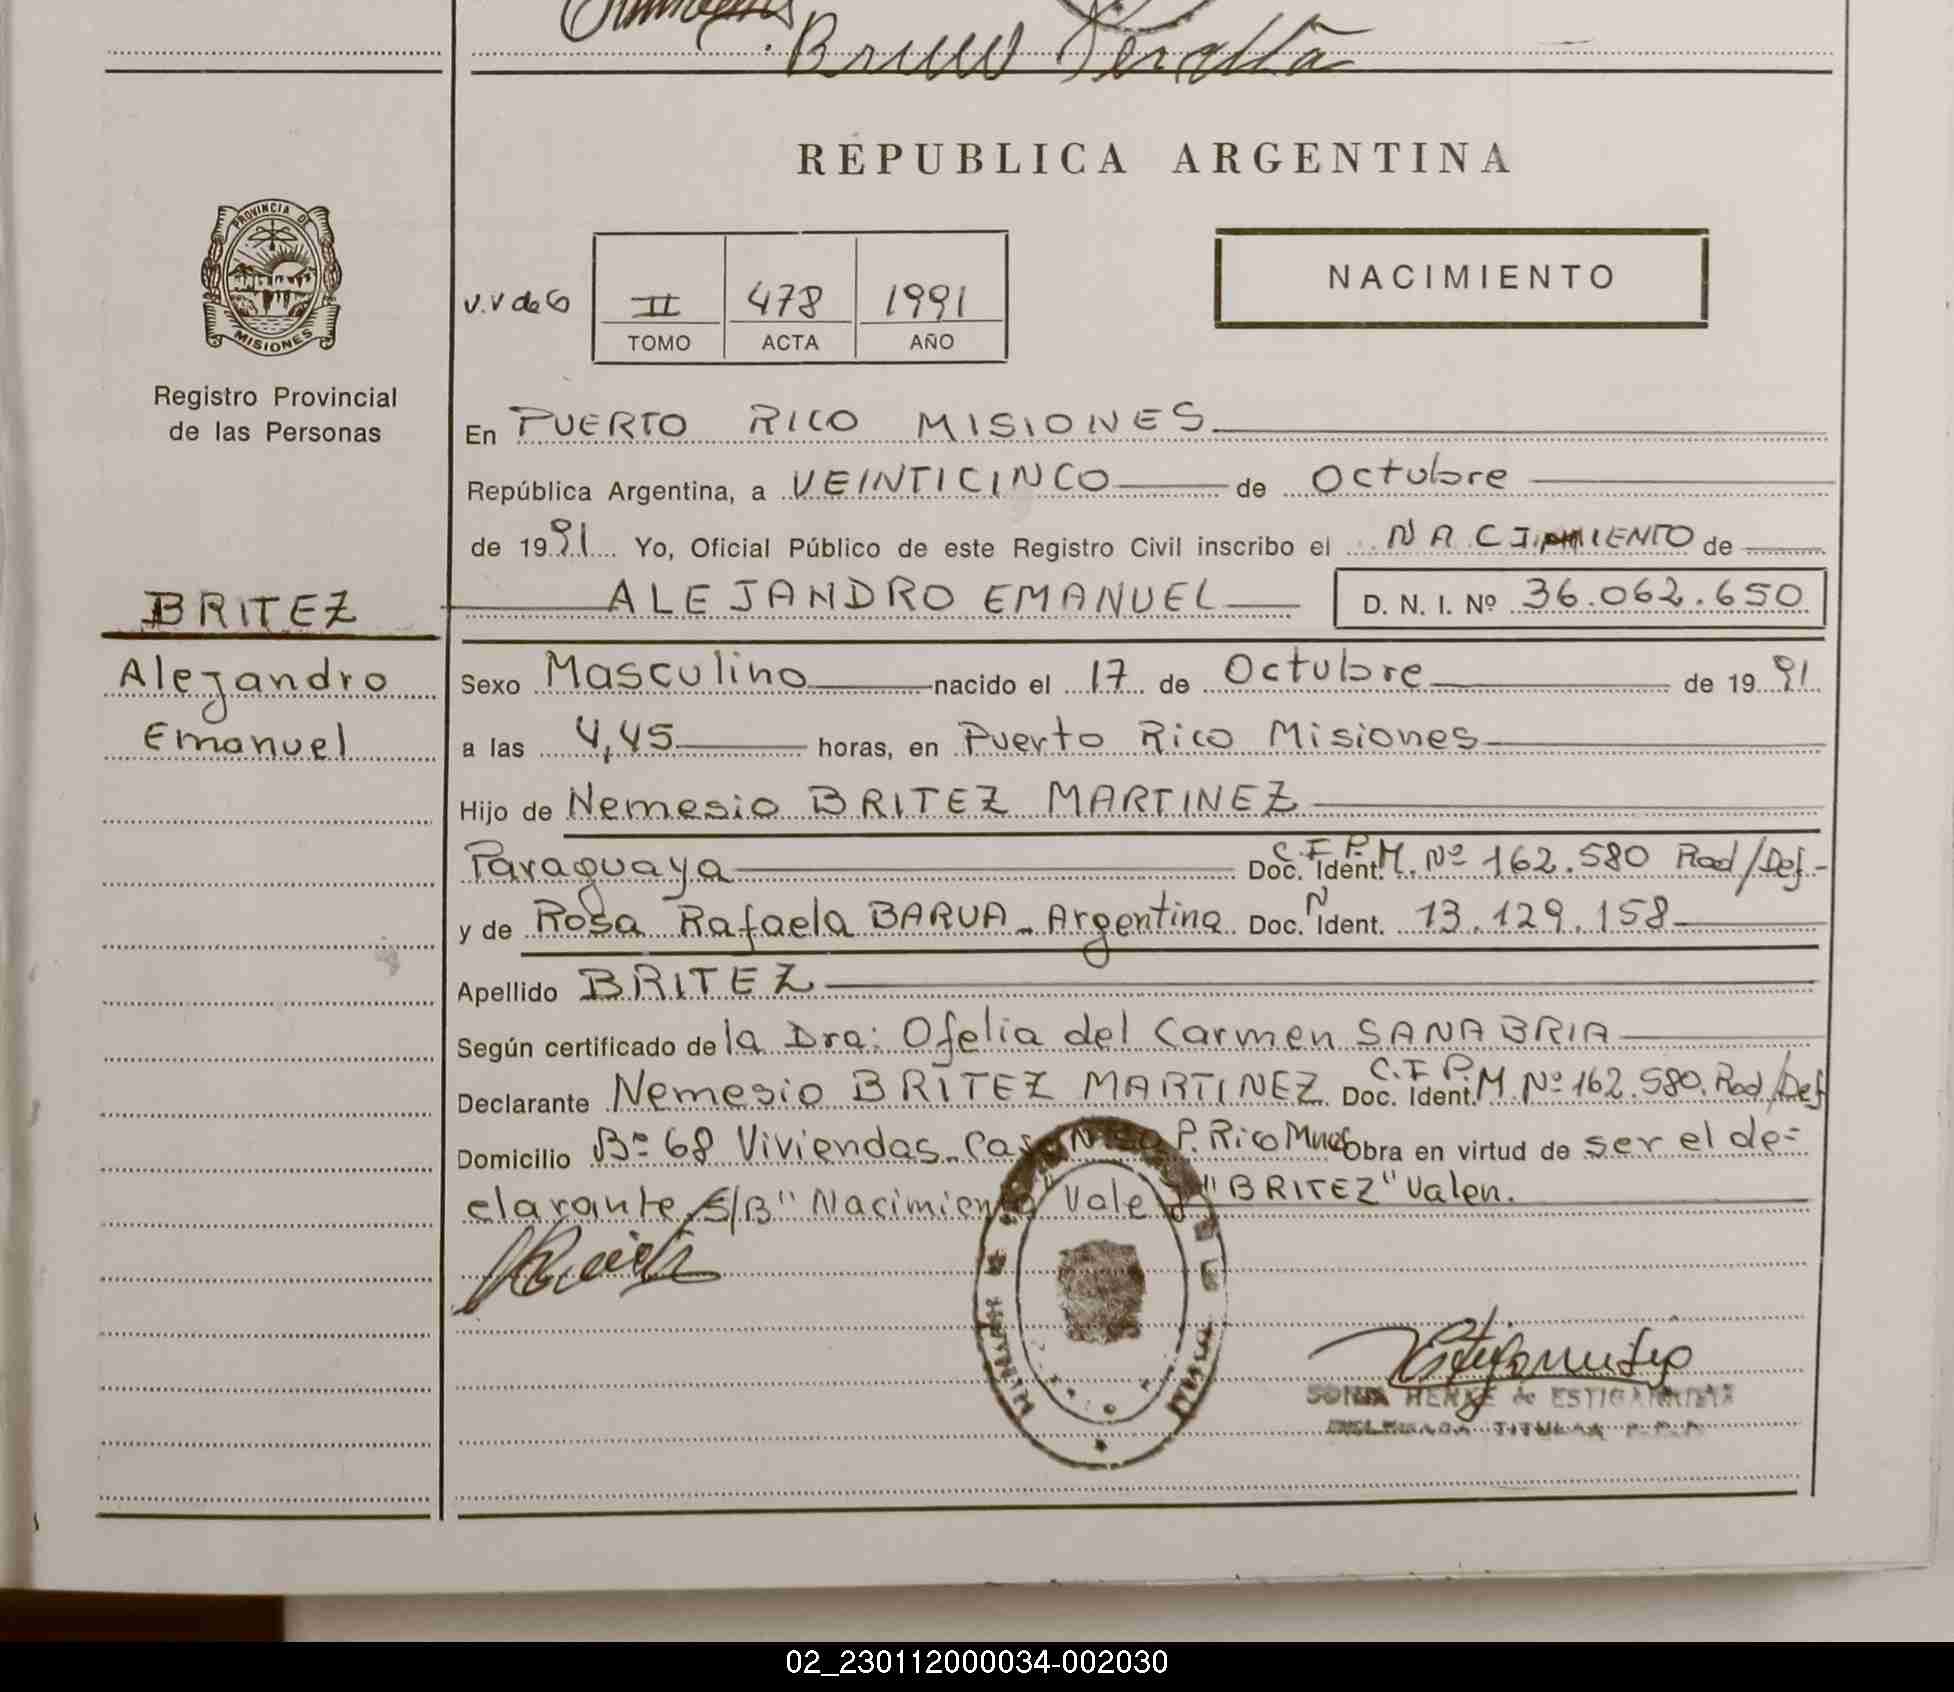 Bruno Peralta
REPUBLICA ARGENTINA
PROVINCIA DE
MISIONES
Registro Provincial
de las Personas
NACIMIENTO
v.v de G II 478 1991
TOMO ACTA AÑO
En PUERTO RICO MISIONES
República Argentina, a VEINTICINCO de Octubre
de 1991 Yo, Oficial Público de este Registro Civil inscribo el NACIMIENTO de
BRITEZ
Alejandro
Emanuel
ALEJANDRO EMANUEL D. N. I. Nº 36.062.650
Sexo Masculino nacido el 17 de Octubre de 1991
a las 4,45 horas, en Puerto Rico Misiones
Hijo de Nemesio BRITEZ MARTINEZ
Paraguaya Doc. Ident. C.I.P.M. Nº 162.580 Rad/Def-
y de Rosa Rafaela BARUA - Argentina Doc. N Ident. 13.129.158
Apellido BRITEZ
Según certificado de la Dra: Ofelia del Carmen SANABRIA
Declarante Nemesio BRITEZ MARTINEZ Doc. Ident. C.I.P.M Nº 162.580. Rad/Def
Domicilio Bº 68 Viviendas - P. Rico Mnes Obra en virtud de ser el de=
clarante S/B "Nacimiento" Vale y "BRITEZ" Valen.
SONIA HENKE de ESTIGARRIBIA
TITULAR
02_230112000034-002030